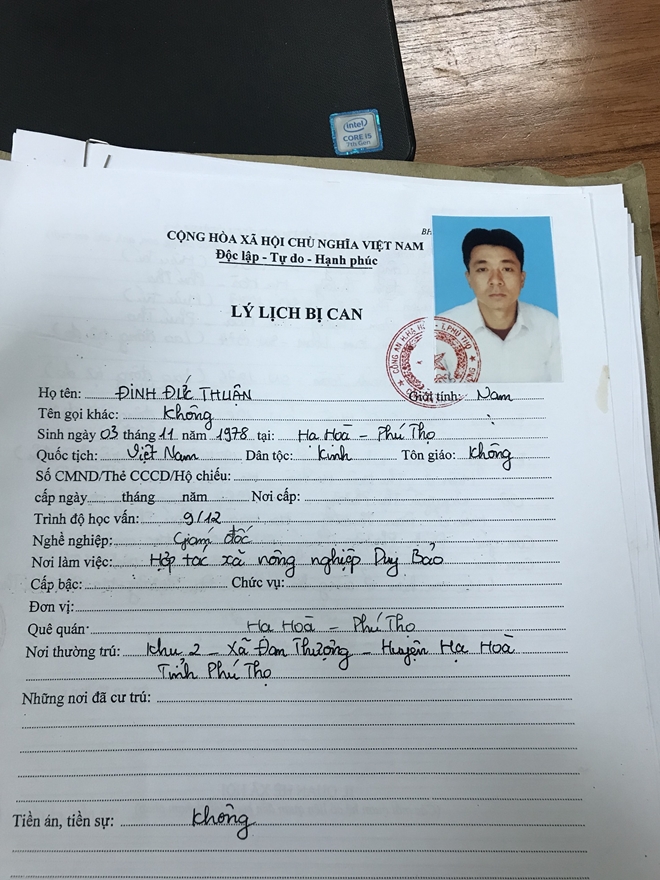 intel
CORE i5
7th Gen
BH
CỘNG HÒA XÃ HỘI CHỦ NGHĨA VIỆT NAM
Độc lập - Tự do - Hạnh phúc
LÝ LỊCH BỊ CAN
CÔNG AN H.HẠ HÒA - T.PHÚ THỌ
Họ tên: ĐINH ĐỨC THUẬN Giới tính: Nam
Tên gọi khác: Không
Sinh ngày 03 tháng 11 năm 1978 tại: Hạ Hoà - Phú Thọ
Quốc tịch: Việt Nam Dân tộc: Kinh Tôn giáo: Không
Số CMND/Thẻ CCCD/Hộ chiếu:
cấp ngày tháng năm Nơi cấp:
Trình độ học vấn: 9/12
Nghề nghiệp: Giám đốc
Nơi làm việc: Hợp tác xã nông nghiệp Duy Bảo
Cấp bậc: Chức vụ:
Đơn vị:
Quê quán: Hạ Hoà - Phú Thọ
Nơi thường trú: Khu 2 - Xã Đan Thượng - Huyện Hạ Hoà
Tỉnh Phú Thọ
Những nơi đã cư trú:
Tiền án, tiền sự: Không